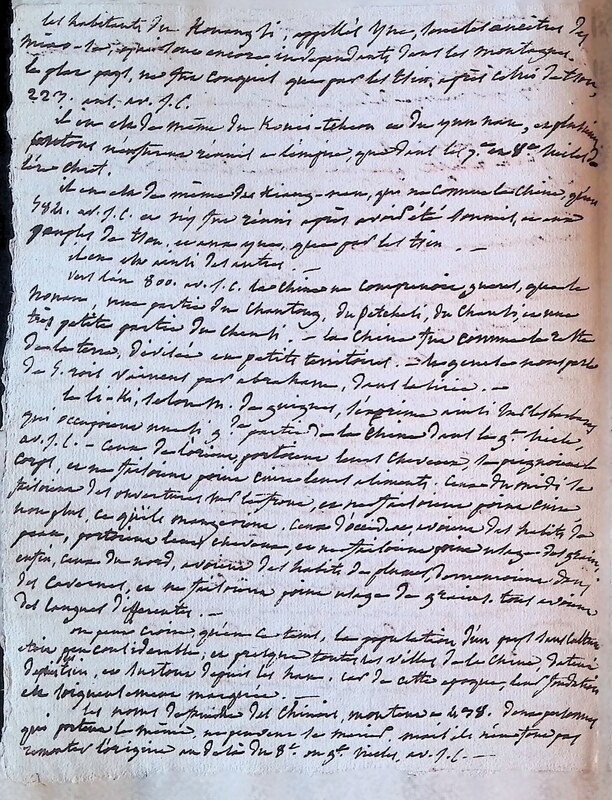 les habitants du Kouangsi, appellés Yue, sont les ancetres des
miao-tse, que sont encore independents dans les montagnes.
le plat pays, ne fut conquis que par les tsin, après celui de tsou,
223. ant. av. J.C.
il en est de même du Kouei-tcheou et du yun nan, et plusieurs
cantons ne furent réunis a l'empire, que dans les 7e et 8e siecles de
l'ère chret.
il en est de même des Kiang-nan, qui ne connut la Chine, qu'en
582. av. J.C. et n'y fut réuni après avoir été soumis, et aux
peuples de tsou, et aux yue, que par les tsin. —
il en est ainsi des autres. —
vers l'an 800. av. J.C. la Chine ne comprenoit, gueres, que le
honan, une partie du Chantong, du petcheli, du Chansi, et une
très petite partie du chensi — la Chine fut comme le reste
de la terre, divisée en petits territoires. — la genese nous parle
de 5. rois vaincus par abraham, dans la sirie. —
le li-ki, selon M. de guignes, s'exprime ainsi sur les barbares
qui occupoient une si gde partie de la Chine dans le 9e siecle,
av. J.C. — Ceux de l'orient, portoient leurs cheveux, se peignoient le
corps, et ne faisoient point cuire leurs aliments. Ceux du midi se
faisoient des ouvertures sur le front, et ne faisoient point cuire
non plus, ce qu'ils mangeoient. Ceux d'occident, avoient des habits de
peau, portoient leurs cheveux, et ne faisoient point usage des grains
enfin, ceux du nord, avoient des habits de plumes, demeuroient dans
des cavernes, et ne faisoient point usage de graines. tous avoient
des langues differentes. —
on peut croire, qu'en ce tems, la population d'un pays sans culture
etoit peu considerable, et presque toutes les villes de la Chine, datent
depuis les tsin, et surtout depuis les han. car de cette epoque, leur fondation
est soigneusement marquée. —
les noms de famille des Chinois, montent a 438. deux personnes
qui portent le même, ne peuvent se marier. mais ils ne font pas
remonter l'origine au delà du 8e ou 9e siecles, av. J.C. —